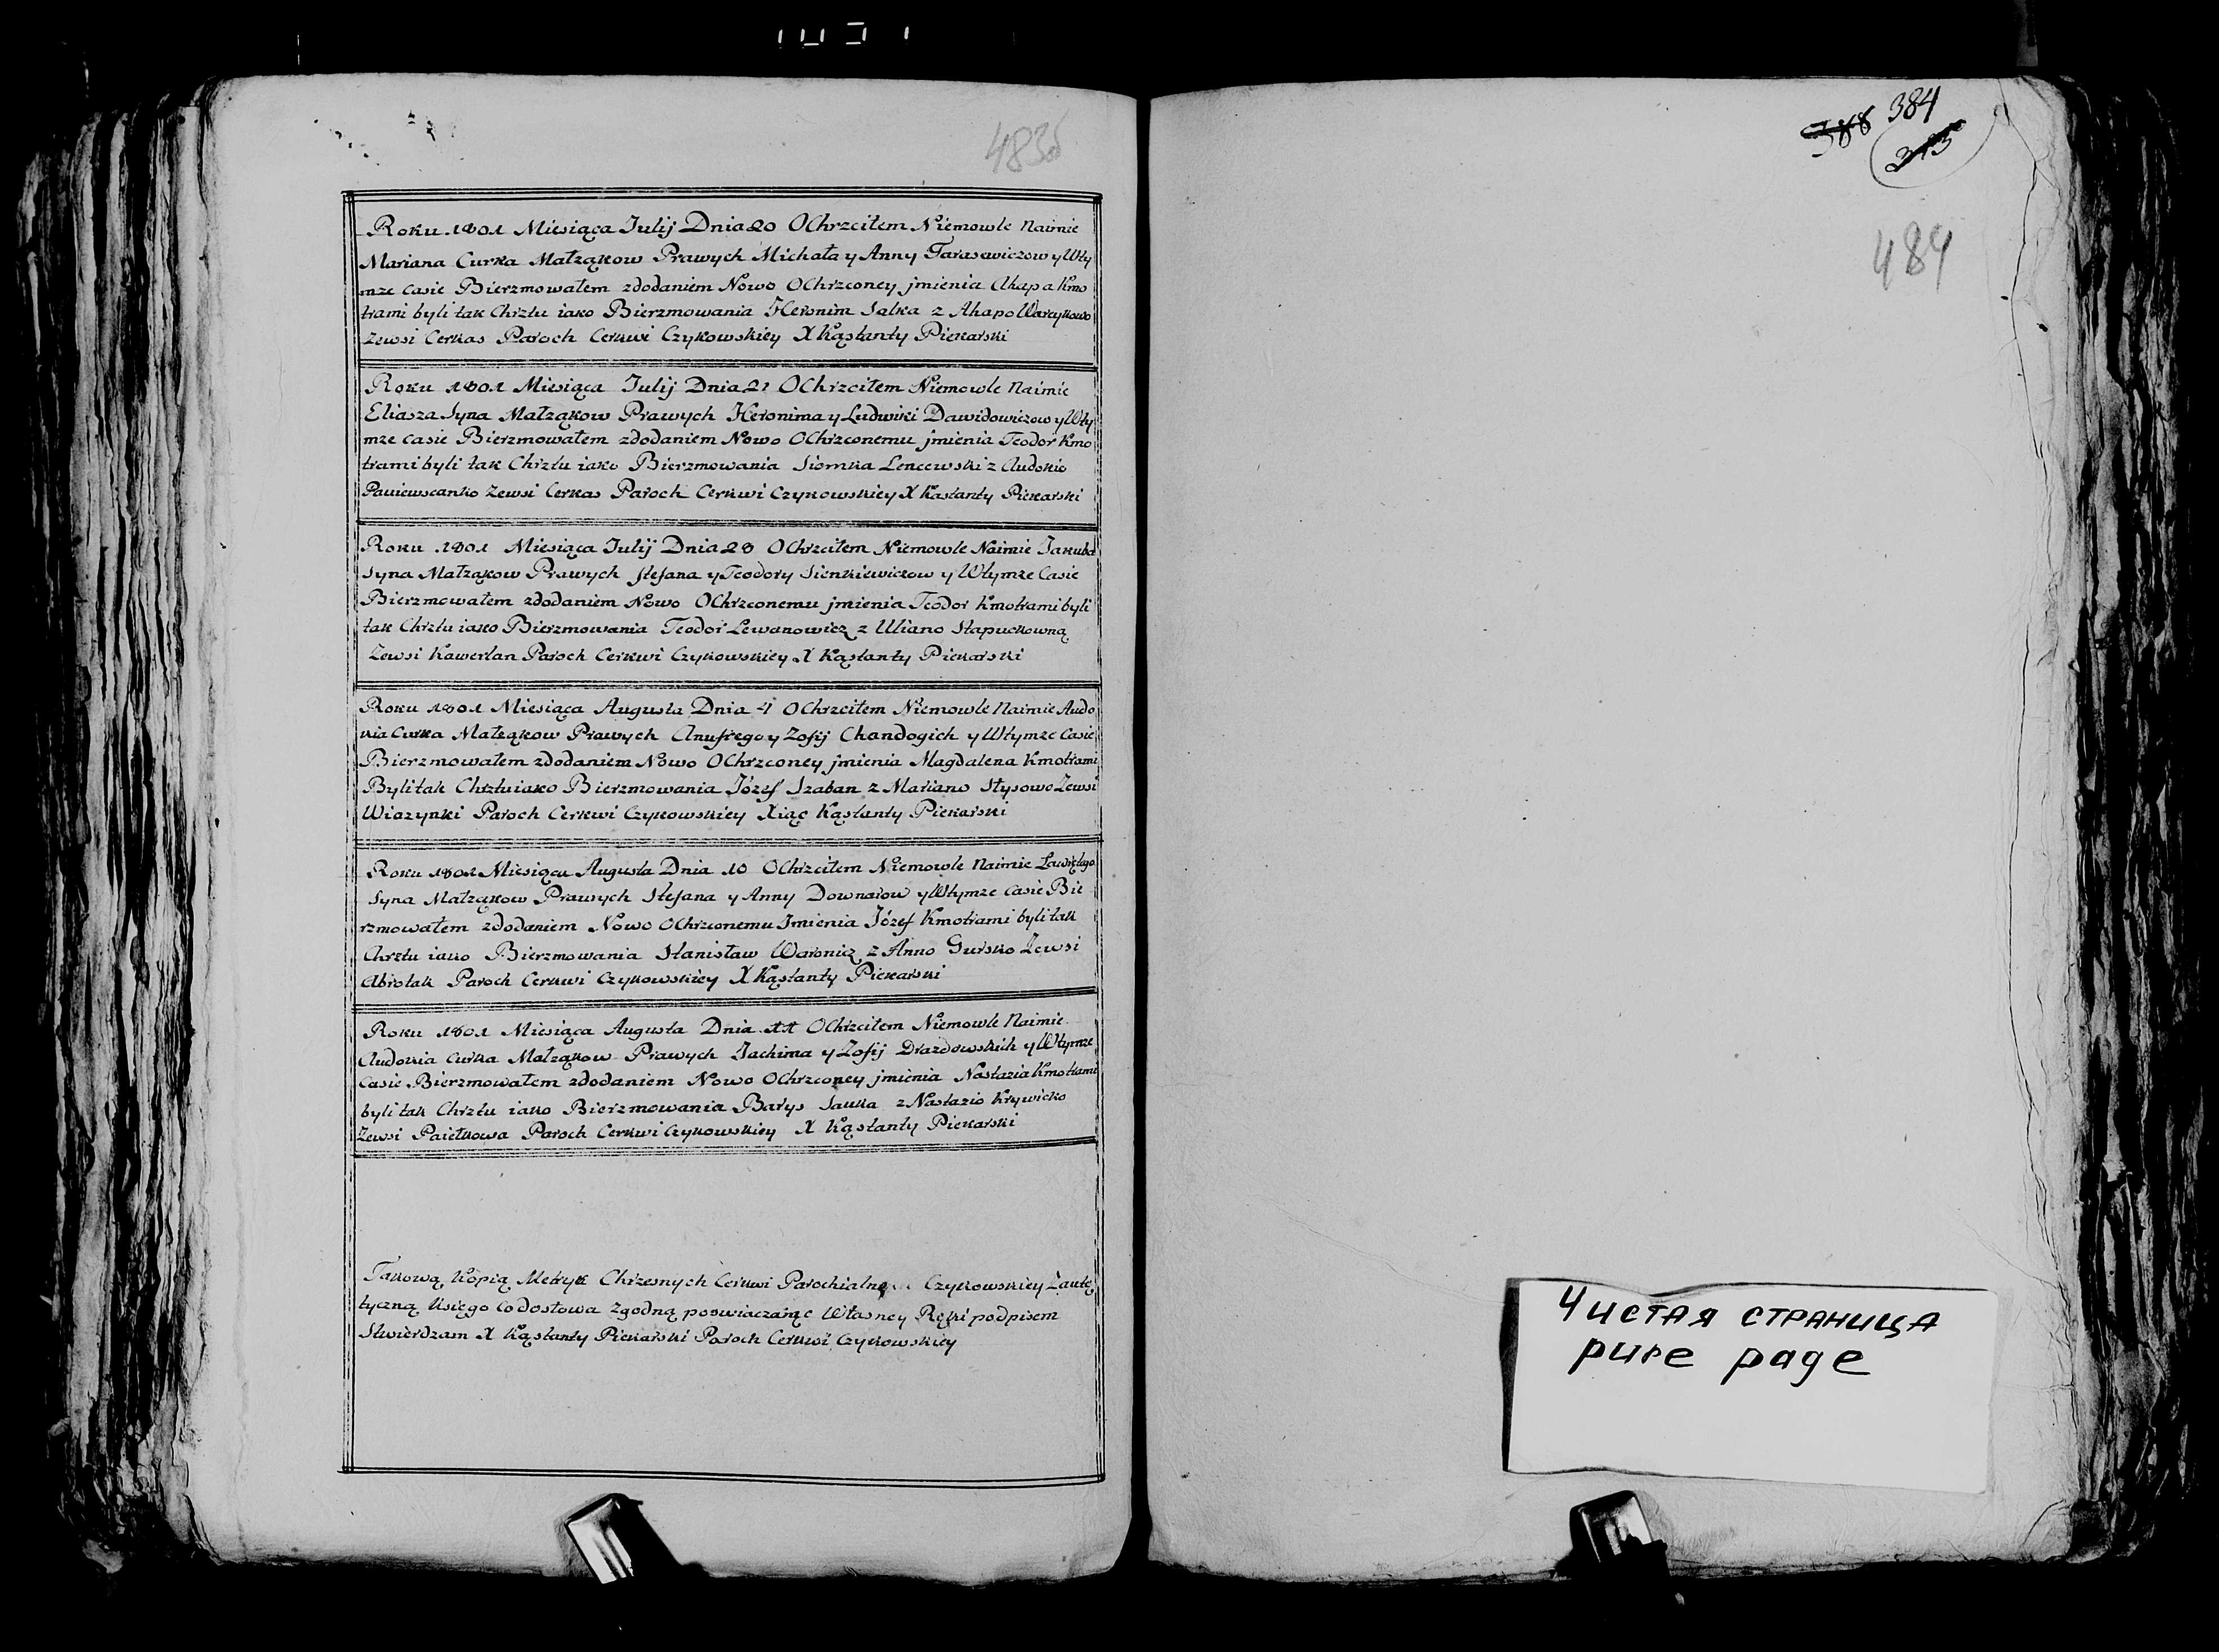 483об
Roku 1801 Miesiąca Julij Dnia 20 Ochrzciłem Niemowle Naimie
Mariana Curka Małząkow Prawych Michała y Anny Tarasewiczow y Wty
mze Casie Bierzmowałem zdodaniem Nowo Ochrzconey jmienia Ahapa Kmo
trami byli tak Chrztu iako Bierzmowania Heronim Salka z Ahapo
Zewsi Cerkas Paroch Cerkwi Czykowskiey X Kąstanty Piekarski
Roku 1801 Miesiąca Julij Dnia 21 Ochrzciłem Niemowle Naimie
Eliasza Syna Małząkow Prawych Heronima y Ludwiki Dawidowiczow y Wty
mze Casie Bierzmowałem zdodaniem Nowo Ochrzconemu jmienia Teodor Kmo
trami byli tak Chrztu iako Bierzmowania Siomka Lencewski z Audokio
Zewsi Cerkas Paroch Cerkwi Czykowskiey X Kąstanty Piekarski
Roku 1801 Miesiąca Julij Dnia 28 Ochrzciłem Niemowle Naimie Jakuba
Syna Małząkow Prawych Stefana y Teodory Sienkiewiczow y Wtymze Casie
Bierzmowałem zdodaniem Nowo Ochrzconemu jmienia Teodor Kmotrami byli
tak Chrztu iako Bierzmowania Teodor Lewanowicz z Uliano Słapuckowną
Zewsi Kawerlan Paroch Cerkwi Czykowskiey X Kąstanty Piekarski
Roku 1801 Miesiąca Augusta Dnia 4 Ochrzciłem Niemowle Naimie Audo
kia Curka Małząkow Prawych Anufrego y Zofij Chandogich y Wtymze Casie
Bierzmowałem zdodaniem Nowo Ochrzconey jmienia Magdalena Kmotrami
Byli tak Chrztu iako Bierzmowania Józef Szaban z Mariano Stysowo Zewsi
Wiazynki Paroch Cerkwi Czykowskiey Xiąc Kąstanty Piekarski
Roku 1801 Miesiąca Augusta Dnia 10 Ochrzciłem Niemowle Naimie
Syna Małząkow Prawych Stefana y Anny Downarow y Wtymze Casie Bie
rzmowałem zdodaniem Nowo Ochrzconemu Jmienia Józef Kmotrami byli tak
Chrztu iako Bierzmowania Stanisław Waronicz z Anno Gursko Zewsi
Abrotak Paroch Cerkwi Czykowskiey X Kąstanty Piekarski
Roku 1801 Miesiąca Augusta Dnia 11 Ochrzciłem Niemowle Naimie
Audokia Curka Małząkow Prawych Jachima y Zofij Drazdowskich y Wtymze
Casie Bierzmowałem zdodaniem Nowo Ochrzconey jmienia Nastazia Kmotrami
byli tak Chrztu iako Bierzmowania Barys Sauka z Nastazio Krywicko
Zewsi Paietkowa Paroch Cerkwi Czykowskiey X Kąstanty Piekarski
Takową Kopią Metryk Chrzesnych Cerkwi Parochialney Czykowskiey Zaute
tyczną Ksiego Codosłowa Zgodną poswiaczaiąc Własney Ręki podpisem
Stwierdzam X Kąstanty Piekarski Paroch Cerkwi Czykowskiey
388 384
484
Чистая страница
pure page